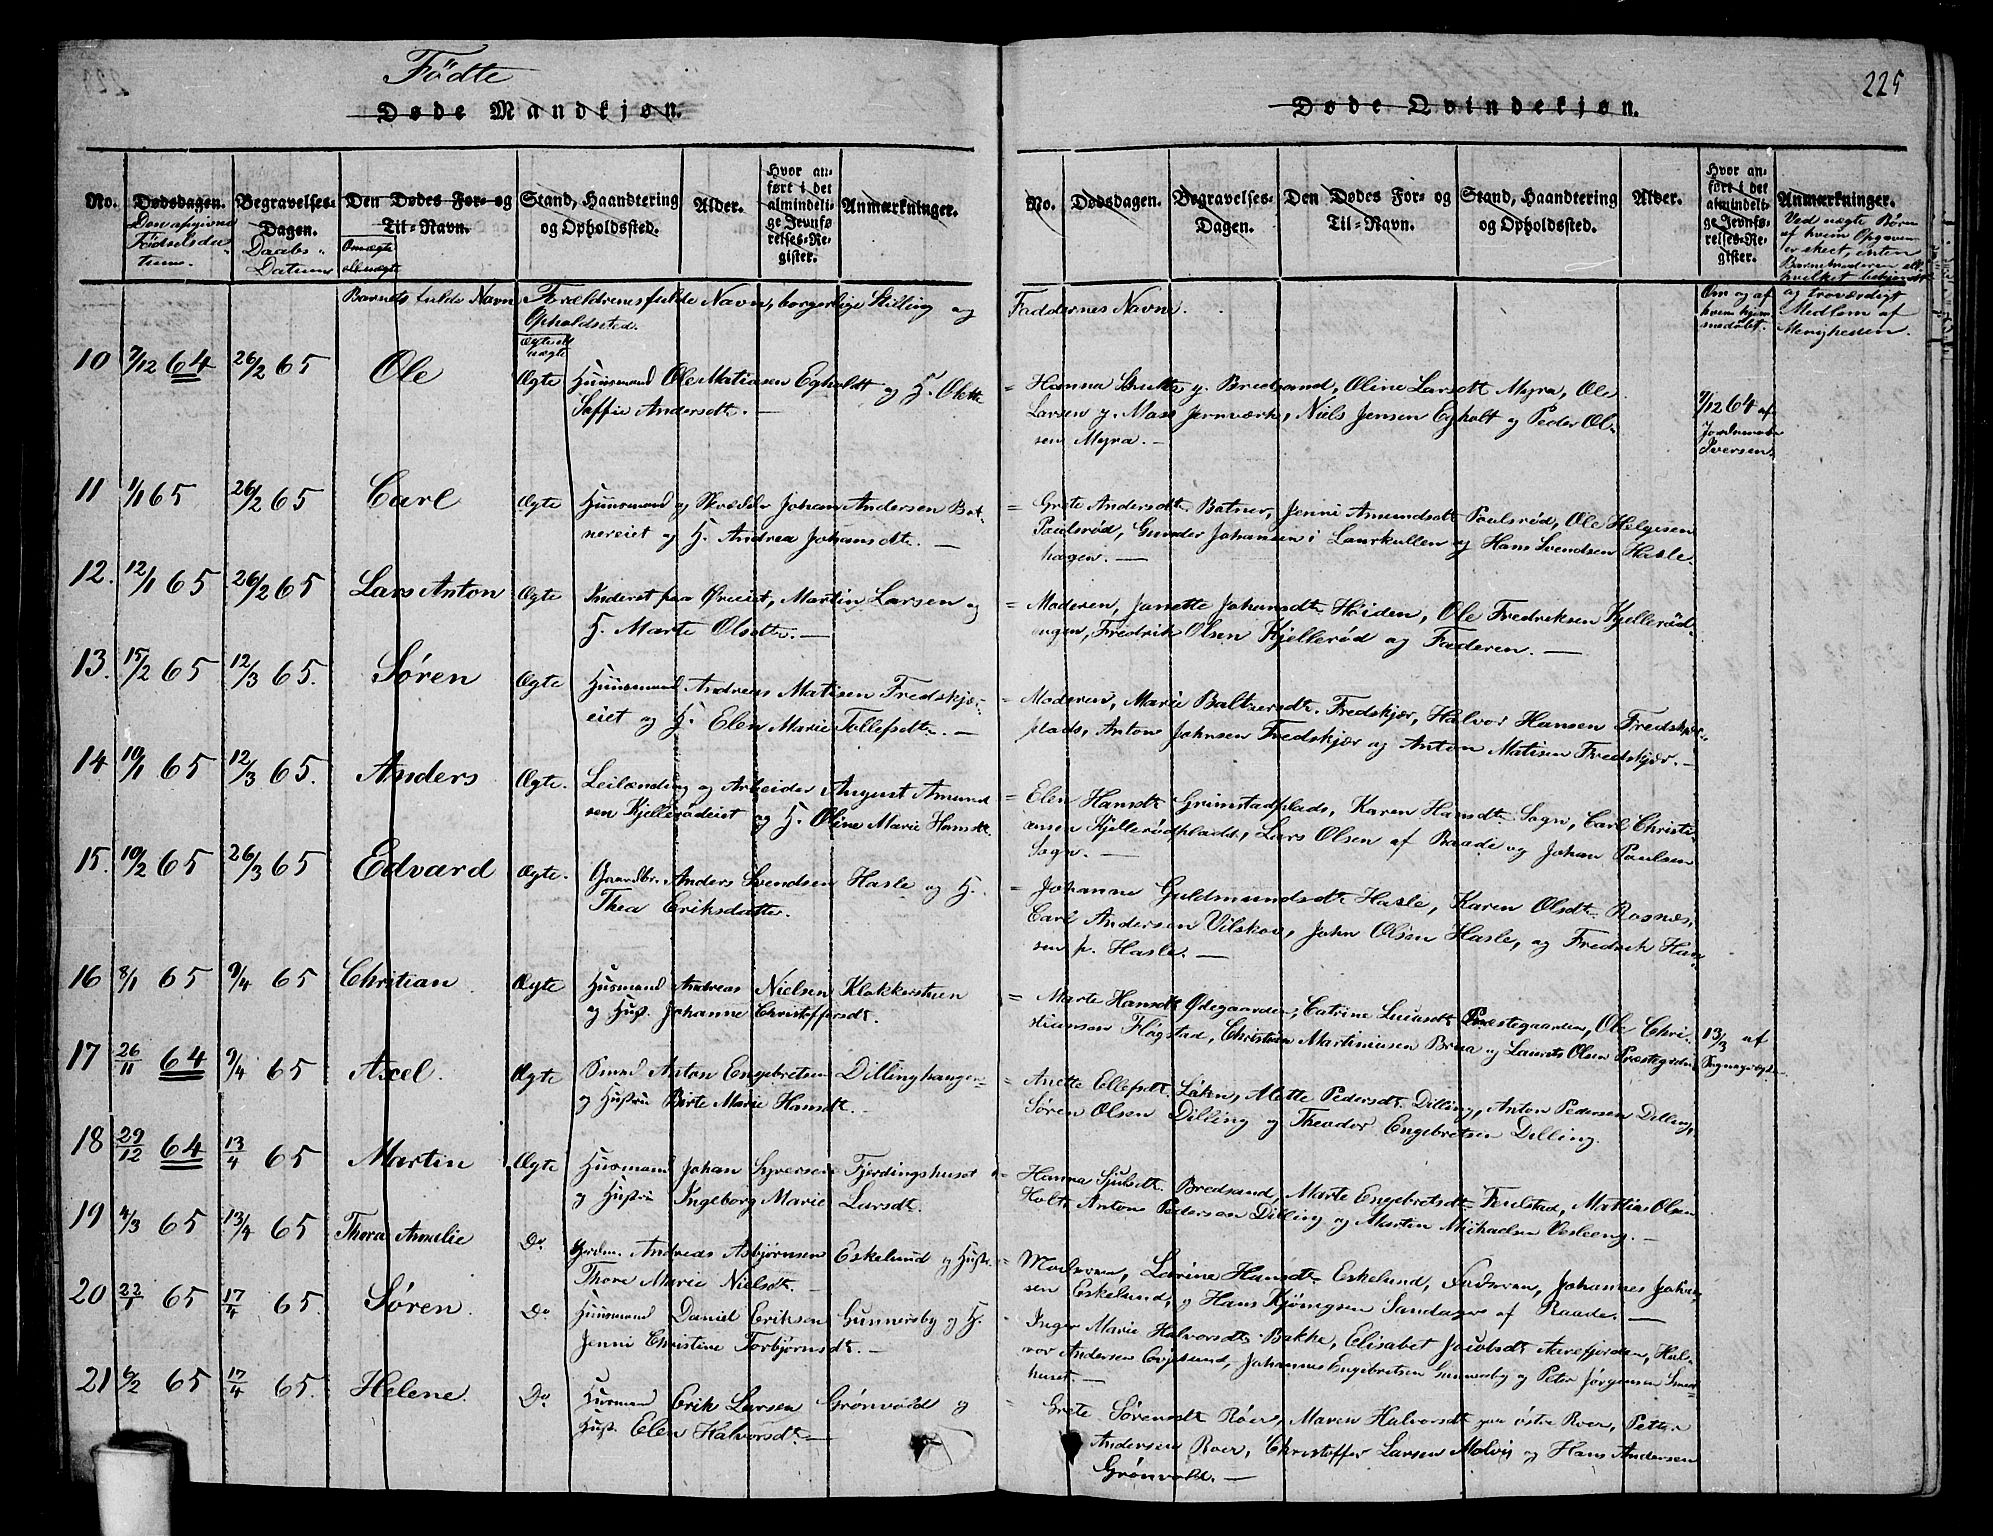 Fødte
225
Døde Mandkjøn.
Døde Qvindekjøn.
No.
Dødsdagen.
Begravelses-Dagen.
Den Dødes For- og Til-Navn.
Stand, Haandtering og Opholdssted.
Alder.
Hvor anført i det almindelige Jevnførelses-Register.
Anmærkninger.
Daabs-Datum
Uægte el. ægte
No.
Dødsdagen.
Begravelses-Dagen.
Den Dødes For- og Til-Navn.
Stand, Haandtering og Opholdssted.
Alder.
Hvor anført i det almindelige Jevnførelses-Register.
Anmærkninger.
Ved uægte Børn af hvem Opgaven er skeet, enten Barnemoderen ell. hvilket bekjendt og troværdigt Medlem af Menigheden.
Barnets fulde Navn
Forældrenes fulde Navn, borgerlige Stilling og Opholdssted.
Faddernes Navn.
Om og af hvem hjemmedøbt.
10 7/12 64 26/2 65 Ole Ægte Huusmand Ole Matiasen Egholdt og H. Olette
Soffie Andersdt. —
= Hanna g. Bredsand, Oline Larsdt Myra, Ole
Larsen g. Moss Jernværk, Niels Jensen Egholt og Peder Ol-
sen Myra. —
9/12 64 af Jordemoder Iversen
11 1/1 65 26/2 65 Carl Ægte Huusmand og Skrædder Johan Andersen Bat-
nereiet og H. Andrea Johansdt. —
= Grete Andersdt. Batner, Jenni Amundsdt Paulsrød, Ole Helgesen
Paulsrød, Gunder Johansen i Laurkullen og Hans Svendsen Hasle
hagen. —
12. 12/1 65 26/2 65 Lars Anton Ægte Inderst paa Ørneiet, Martin Larsen og
H. Marte Olsdt. —
= Moderen, Janette Johansdt. Høiden, Ole Fredriksen Kjellerød-
engen, Fredrik Olsen Kjellerød og Faderen. —
13. 15/2 65 12/3 65. Søren Ægte Huusmand Andreas Matisen Fredskjær-
eiet og H. Elen Marie Tollefsdt. —
= Moderen, Marie Baltzersdt. Fredskjær, Halvor Hansen Fredskjær-
plads, Anton Johnsen Fredskjær og Anton Matisen Fredskjær. —
14 10/1 65 12/3 65. Anders Ægte. Leilænding og Arbeider August Amund
sen Kjellerødeiet og H. Oline Marie Hansdt.
= Elen Hansdt Grimstadplads, Karen Hansdt. Sogn, Carl Christi-
ansen Kjellerødpladst, Lars Olsen af Raade og Johan Paulsen
Sogn. —
15. 10/2 65 26/3 65 Edvard Ægte. Gaardbr. Anders Svendsen Hasle og H.
Thea Eriksdatter.
= Johanne Guldsmundsdt Hasle, Karen Olsdt. Rosnæs,
Carl Andersen Vilskov, John Olsen Hasle, og Fredrik Han-
sen p. Hasle. —
16 8/1 65 9/4 65 Christian Ægte Husmand Andreas Nielsen Klokkerstuen
og Hust. Johanne Christoffersdt.
= Marte Hansdt Ødegaarden, Catrine Luiasdt Præstegaarden, Ole Chri-
stiansen Fløgstad, Christian Martiniusen Brua og Laurits Olsen Præstegrden
13/3 af
17 26/11 64 9/4 65 Axel. Ægte Smed Anton Engebretsen Dillinghaugen
og Hustru Birte Marie Hansdt. —
= Anette Ellefsdt. Løken, Mette Pedersdt. Dilling, Anton Pedersen Dilling,
Søren Olsen Dilling og Theodor Engebretsen Dilling.
18 29/12 64 13/4 65 Martin Ægte Husmand Johan Syversen Fjerdingshuset
og Hustru Ingeborg Marie Larsdt.
= Hanna Sjulsdt. Bredsand, Marte Engebretsdt. Feulstad, Mathias Olsen
Holt, Anton Pedersen Dilling og Martin Michaelsen Vesleeng. —
19 4/3 65 13/4 65 Thora Amalie Do Andreas Asbjørnsen Eskelund og Hust.
Thore Marie Nielsdt.
= Moderen, Larine Hansdt. Eskelund, Faderen, Johannes Johan-
sen Eskelund, og Hans Kjønigsen Sandager af Raade. —
20 22/1 65 17/4 65. Søren. Do Huusmand Daniel Eriksen Gunnersby og H.
Jenni Christine Torbjørnsdt. —
- Inger Marie Halvorsdt. Bakke, Elisabet Jacobsdt Aarefjorden, Hal-
vor Andersen, Johannes Engebretsen Gunnersby og Peter Jørgensen Smed-
huset. —
21 6/2 65 17/4 65. Helene. Do Husmand Erik Larsen Grønvold og
Hust. Elen Halvorsdt. —
- Grete Sørensdt Roer, Maren Halvorsdt paa østre Roer, Petter
Andersen Roer, Christoffer Larsen Molvig og Hans Andersen
Grønvold. —